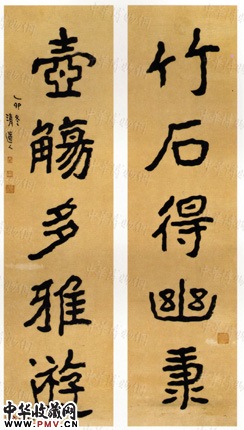 竹石得幽秉
壺觴多雅遊
乙卯冬 清道人
中华收藏网
www.PMV.cn